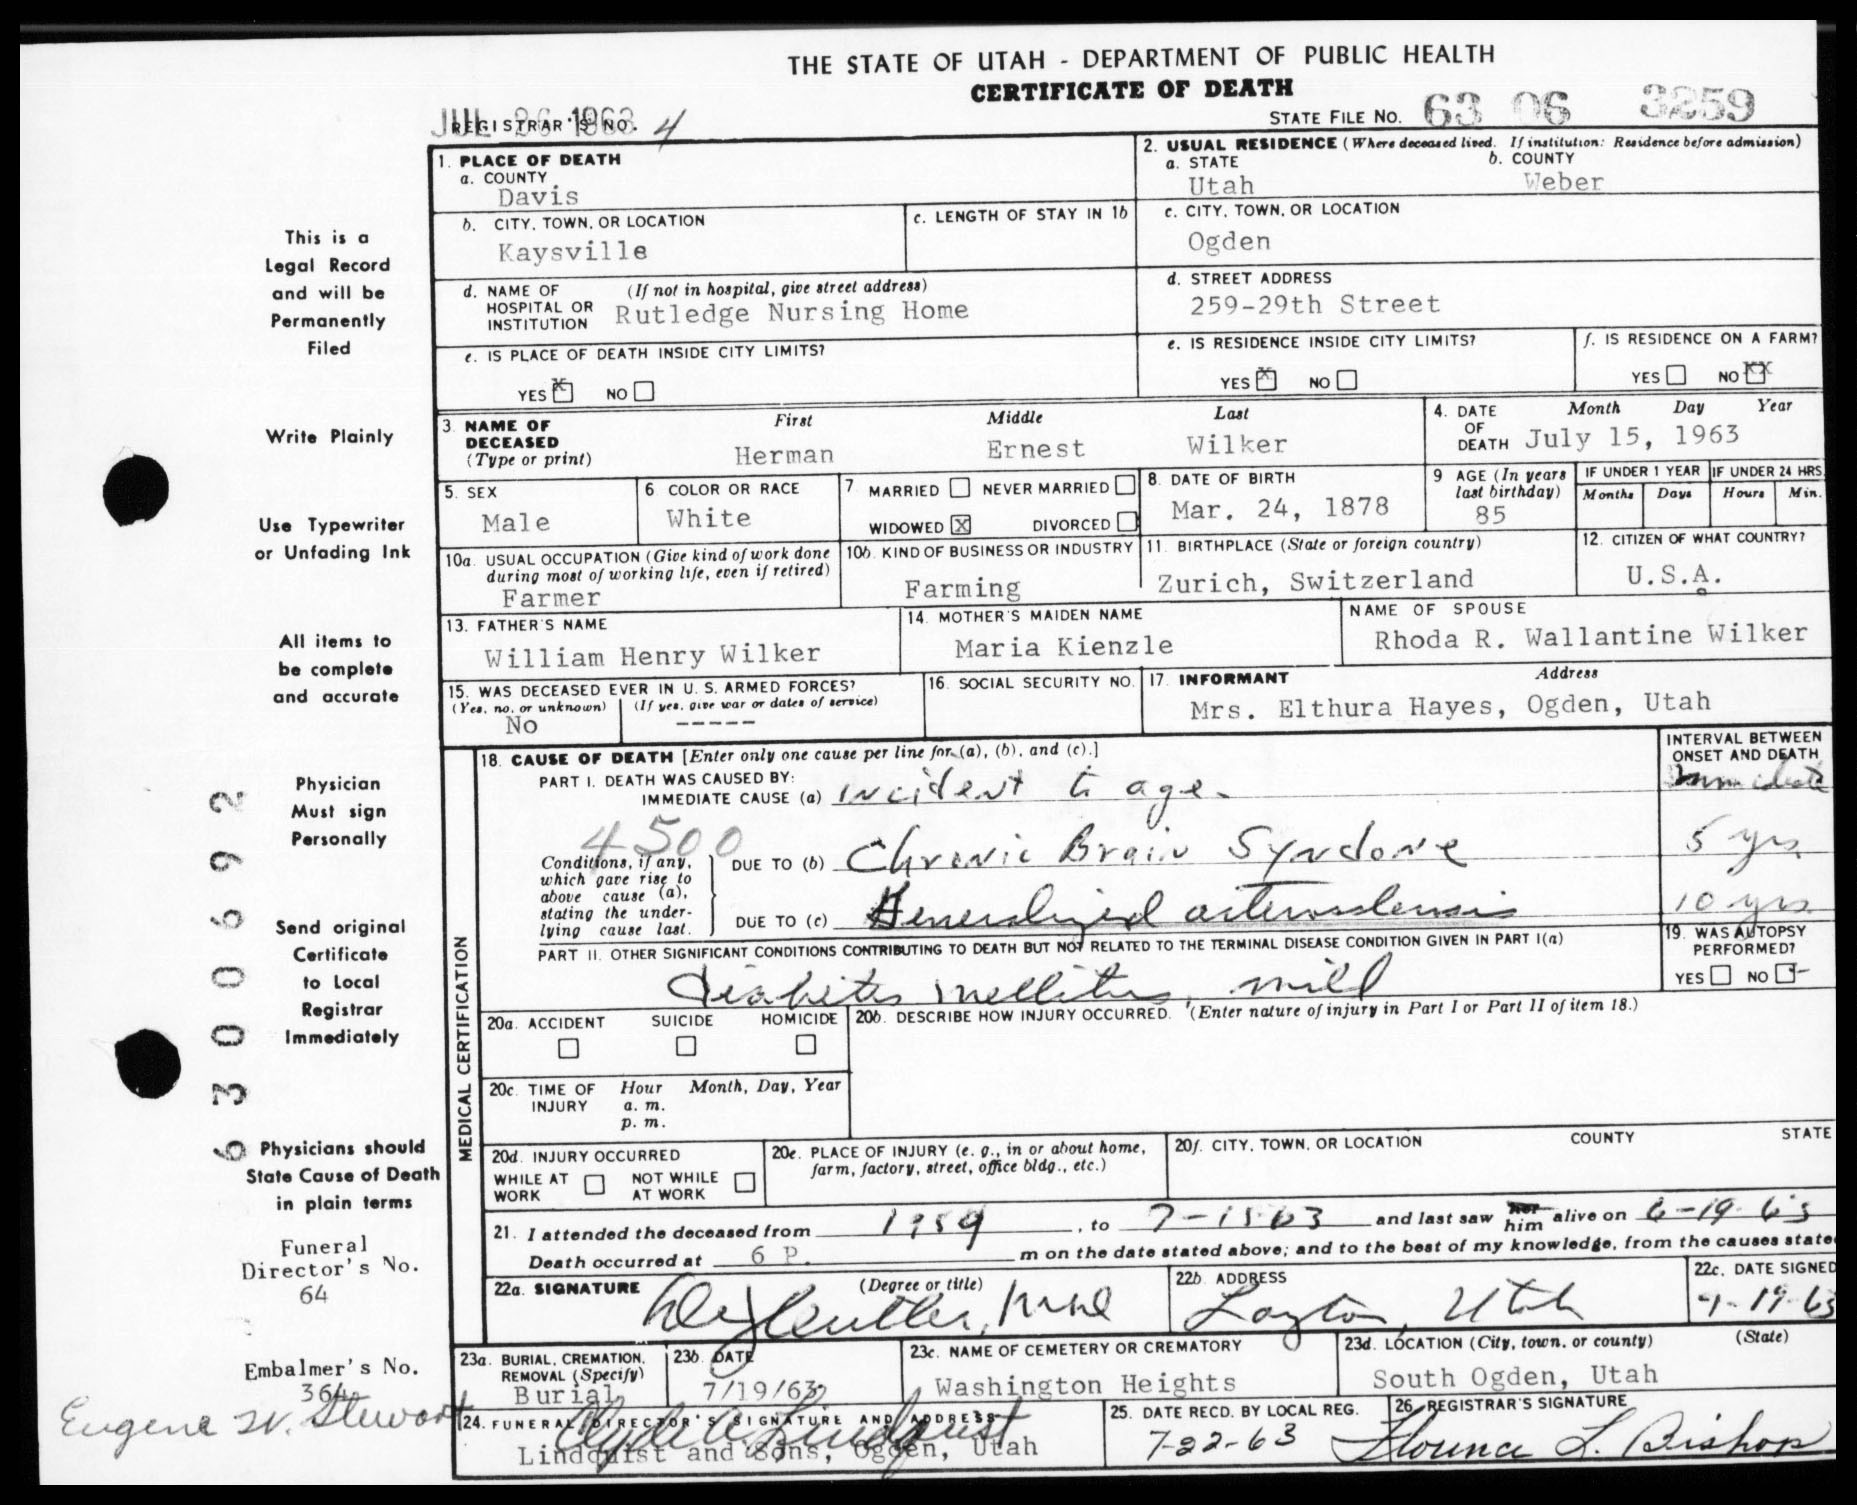 THE STATE OF UTAH - DEPARTMENT OF PUBLIC HEALTH
CERTIFICATE OF DEATH
JUL 26 1963
REGISTRAR'S NO. 4
STATE FILE NO. 63 06 3259
1. PLACE OF DEATH
a. COUNTY
Davis
2. USUAL RESIDENCE (Where deceased lived. If institution: Residence before admission)
a. STATE b. COUNTY
Utah Weber
b. CITY, TOWN, OR LOCATION
Kaysville
c. LENGTH OF STAY IN 1b
c. CITY, TOWN, OR LOCATION
Ogden
d. NAME OF HOSPITAL OR INSTITUTION (If not in hospital, give street address)
Rutledge Nursing Home
d. STREET ADDRESS
259-29th Street
e. IS PLACE OF DEATH INSIDE CITY LIMITS?
YES X NO
e. IS RESIDENCE INSIDE CITY LIMITS?
YES X NO
f. IS RESIDENCE ON A FARM?
YES NO XX
3. NAME OF DECEASED (Type or print)
First Middle Last
Herman Ernest Wilker
4. DATE OF DEATH Month Day Year
July 15, 1963
5. SEX
Male
6. COLOR OR RACE
White
7. MARRIED NEVER MARRIED
WIDOWED X DIVORCED
8. DATE OF BIRTH
Mar. 24, 1878
9 AGE (In years last birthday)
85
IF UNDER 1 YEAR IF UNDER 24 HRS.
Months Days Hours Min.
10a. USUAL OCCUPATION (Give kind of work done during most of working life, even if retired)
Farmer
10b. KIND OF BUSINESS OR INDUSTRY
Farming
11. BIRTHPLACE (State or foreign country)
Zurich, Switzerland
12. CITIZEN OF WHAT COUNTRY?
U.S.A.
13. FATHER'S NAME
William Henry Wilker
14. MOTHER'S MAIDEN NAME
Maria Kienzle
NAME OF SPOUSE
Rhoda R. Wallantine Wilker
15. WAS DECEASED EVER IN U. S. ARMED FORCES?
(Yes, no, or unknown) (If yes, give war or dates of service)
No -----
16. SOCIAL SECURITY NO.
17. INFORMANT Address
Mrs. Elthura Hayes, Ogden, Utah
MEDICAL CERTIFICATION
18. CAUSE OF DEATH [Enter only one cause per line for (a), (b), and (c).]
INTERVAL BETWEEN ONSET AND DEATH
PART I. DEATH WAS CAUSED BY:
IMMEDIATE CAUSE (a) incident to age. Immediate
4500
Conditions, if any, which gave rise to above cause (a), stating the underlying cause last.
DUE TO (b) Chronic Brain Syndone 5 yrs
DUE TO (c) Generalized arterosclerosis 10 yrs
PART II. OTHER SIGNIFICANT CONDITIONS CONTRIBUTING TO DEATH BUT NOT RELATED TO THE TERMINAL DISEASE CONDITION GIVEN IN PART I(a)
diabetes mellitus, mild
19. WAS AUTOPSY PERFORMED?
YES NO
20a. ACCIDENT SUICIDE HOMICIDE
20b. DESCRIBE HOW INJURY OCCURRED. (Enter nature of injury in Part I or Part II of item 18.)
20c. TIME OF INJURY Hour Month, Day, Year
a. m.
p. m.
20d. INJURY OCCURRED
WHILE AT WORK NOT WHILE AT WORK
20e. PLACE OF INJURY (e. g., in or about home, farm, factory, street, office bldg., etc.)
20f. CITY, TOWN, OR LOCATION COUNTY STATE
21. I attended the deceased from 1959, to 7-15-63 and last saw her him alive on 6-19-63
Death occurred at 6 P. m on the date stated above; and to the best of my knowledge, from the causes state
22a. SIGNATURE (Degree or title)
22b. ADDRESS
Layton, Utah
22c. DATE SIGNED
7-19-63
23a. BURIAL, CREMATION, REMOVAL (Specify)
Burial
23b. DATE
7/19/63
23c. NAME OF CEMETERY OR CREMATORY
Washington Heights
23d. LOCATION (City, town, or county) (State)
South Ogden, Utah
24. FUNERAL DIRECTOR'S SIGNATURE AND ADDRESS
Clyde A. Lindquist
Lindquist and Sons, Ogden, Utah
25. DATE RECD. BY LOCAL REG.
7-22-63
26. REGISTRAR'S SIGNATURE
Florence L. Bishop
This is a
Legal Record
and will be
Permanently
Filed
Write Plainly
Use Typewriter
or Unfading Ink
All items to
be complete
and accurate
Physician
Must sign
Personally
Send original
Certificate
to Local
Registrar
Immediately
Physicians should
State Cause of Death
in plain terms
6300692
Funeral
Director's No.
64
Embalmer's No.
364
Eugene W. Stewart